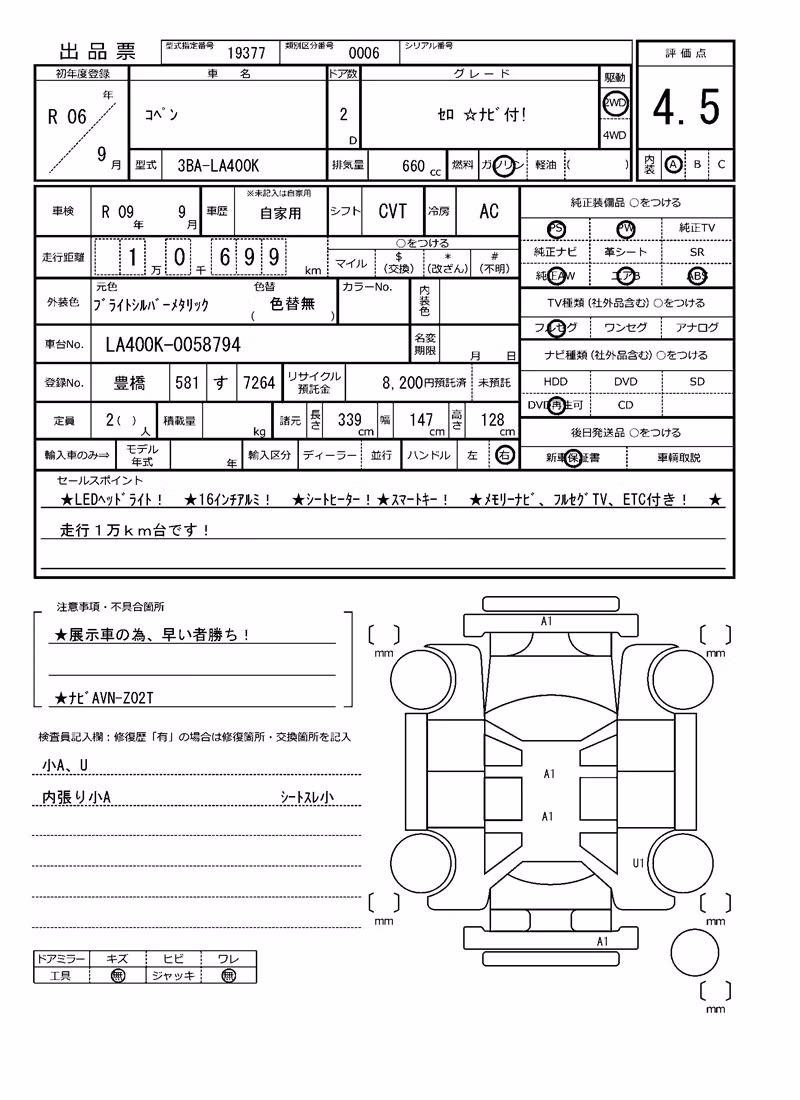 出品票
型式指定番号 19377 類別区分番号 0006 シリアル番号
評価点
4.5
内装 A B C
初年度登録 車名 ドア数 グレード 駆動
R 06 年 9 月
ｺﾍﾟﾝ 2 D ｾﾛ ☆ﾅﾋﾞ付!
2WD
4WD
型式 3BA-LA400K 排気量 660 cc 燃料 ガソリン 軽油 ( )
車検 R 09 年 9 月 車歴 ※未記入は自家用 自家用 シフト CVT 冷房 AC
走行距離 1 万 0 千 6 9 9 km
○をつける
マイル $ (交換) * (改ざん) # (不明)
外装色 元色 ﾌﾞﾗｲﾄｼﾙﾊﾞｰﾒﾀﾘｯｸ 色替 ( 色替無 ) カラーNo. 内装色
車台No. LA400K-0058794 名変期限 月 日
登録No. 豊橋 581 す 7264 リサイクル預託金 8,200円預託済 未預託
定員 2 ( ) 人 積載量 kg 諸元 長さ 339 cm 幅 147 cm 高さ 128 cm
輸入車のみ⇒ モデル年式 年 輸入区分 ディーラー 並行 ハンドル 左 右
純正装備品 ○をつける
PS PW 純正TV
純正ナビ 革シート SR
純正AW エアB ABS
TV種類(社外品含む)○をつける
フルセグ ワンセグ アナログ
ナビ種類(社外品含む)○をつける
HDD DVD SD
DVD再生可 CD
後日発送品 ○をつける
新車保証書 車輌取説
セールスポイント
★LEDﾍｯﾄﾞﾗｲﾄ！ ★16ｲﾝﾁｱﾙﾐ！ ★ｼｰﾄﾋｰﾀｰ！★ｽﾏｰﾄｷｰ！ ★ﾒﾓﾘｰﾅﾋﾞ、ﾌﾙｾｸﾞTV、ETC付き！ ★
走行１万ｋｍ台です！
注意事項・不具合箇所
★展示車の為、早い者勝ち！
★ﾅﾋﾞAVN-Z02T
検査員記入欄：修復歴「有」の場合は修復箇所・交換箇所を記入
小A、U
内張り小A ｼｰﾄｽﾚ小
ドアミラー キズ ヒビ ワレ
工具 無 ジャッキ 無
A1
mm mm
A1
A1
U1
mm mm
A1
mm